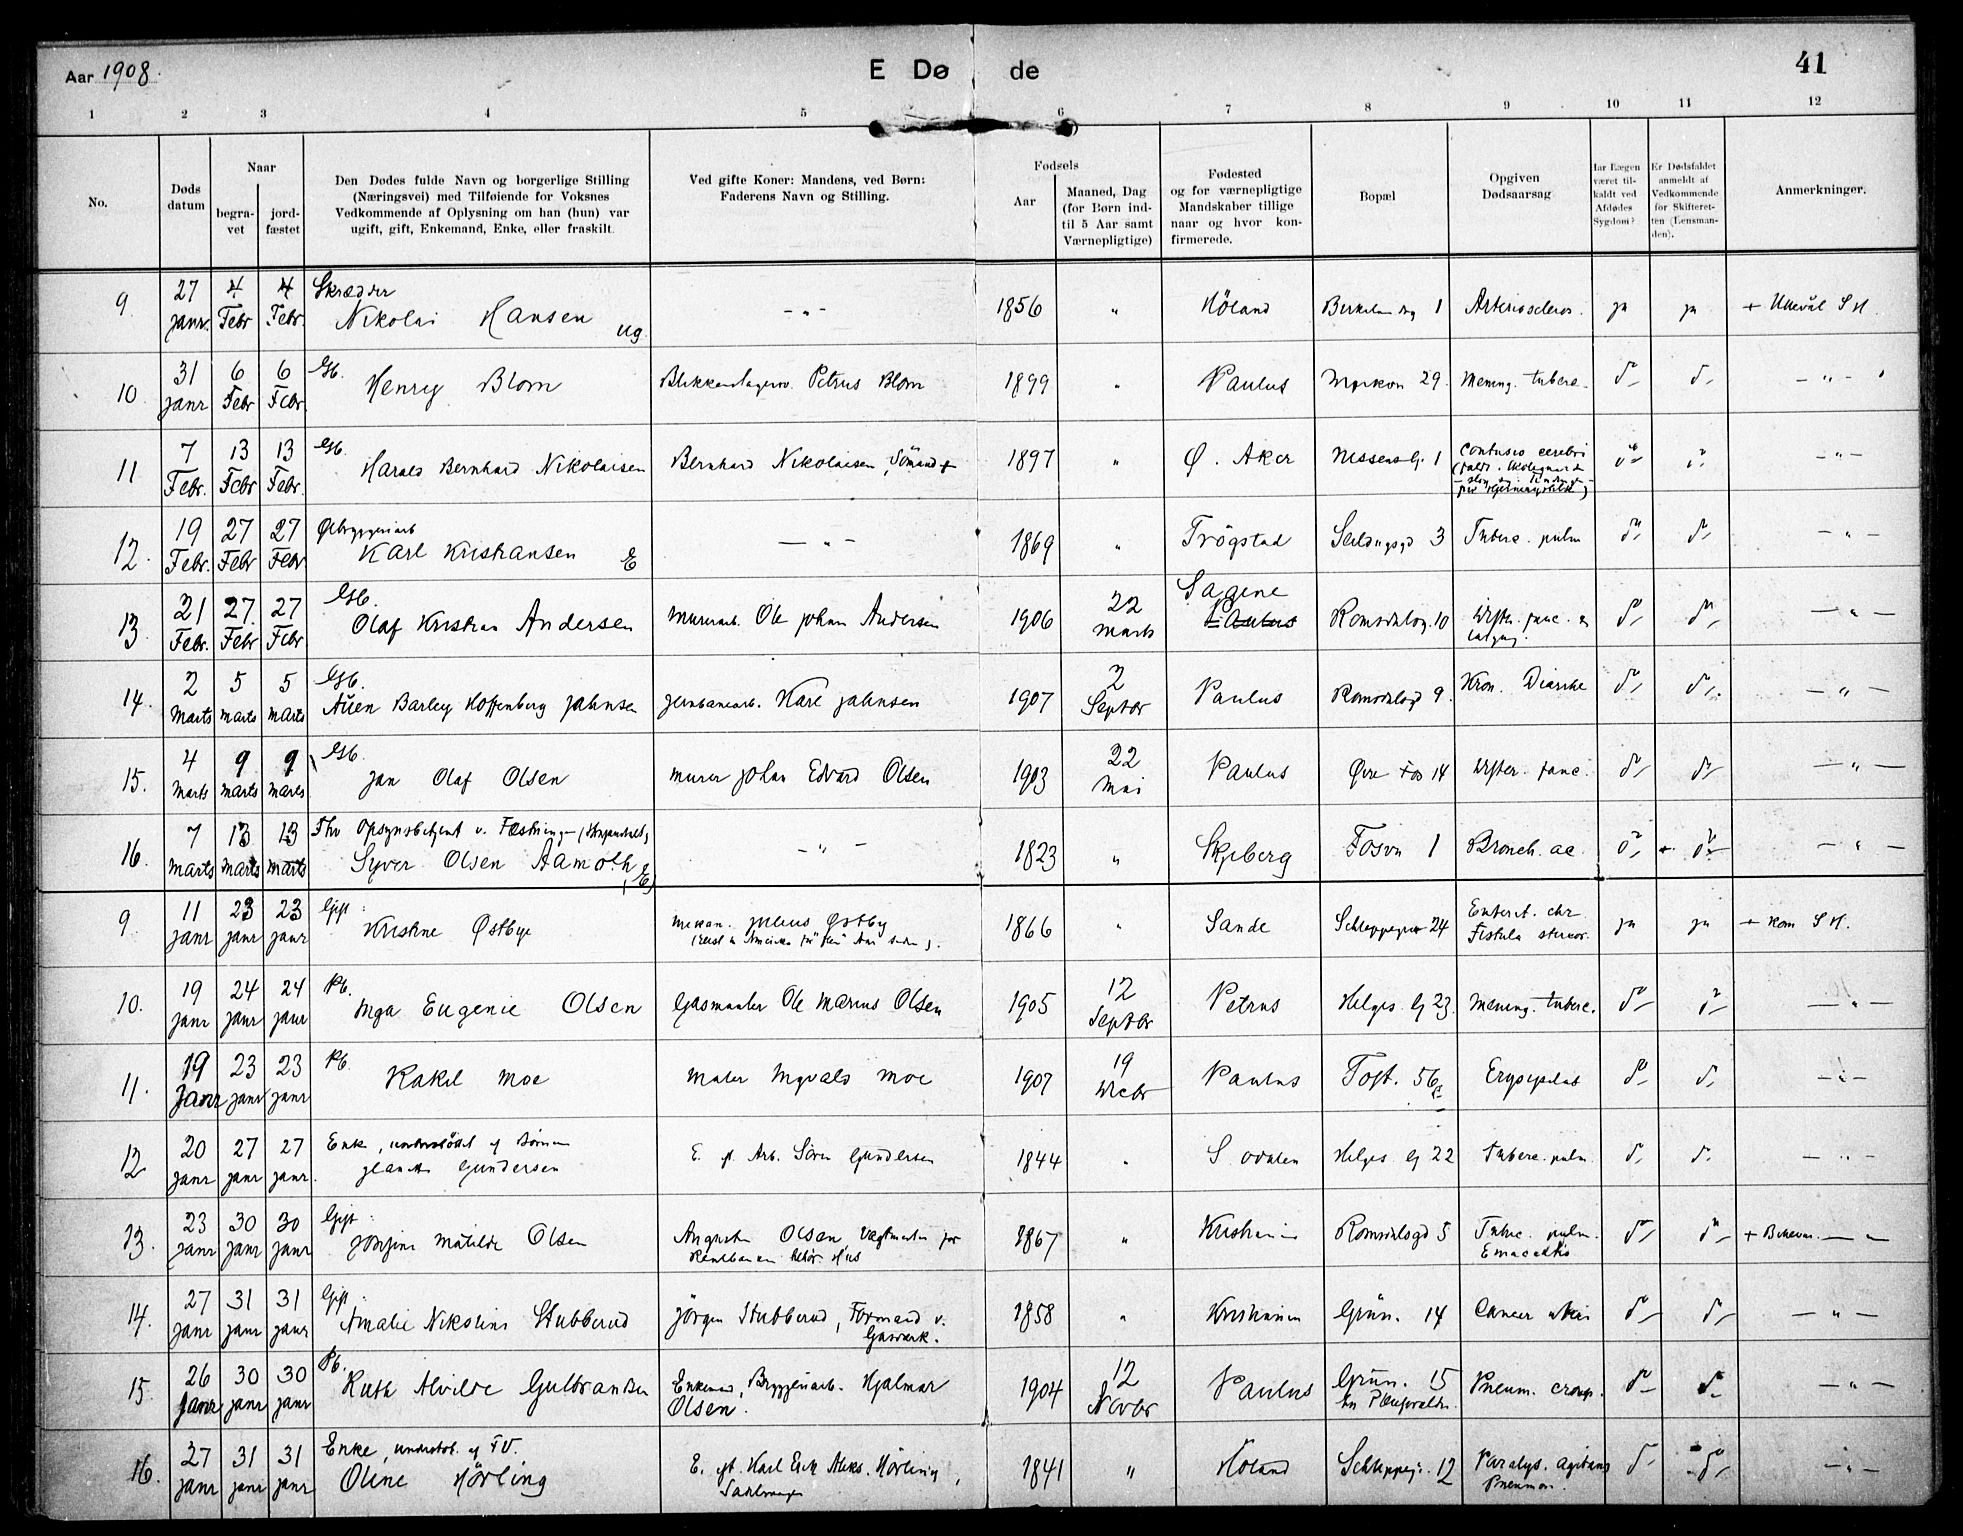 Aar 1908.
E Dø de
41
1 2 3 4 5 6 7 8 9 10 11 12
No.
Døds datum
Naar
begra-vet
jord-fæstet
Den Dødes fulde Navn og borgerlige Stilling
(Næringsvei) med Tilføiende for Voksnes
Vedkommende af Oplysning om han (hun) var
ugift, gift, Enkemand, Enke, eller fraskilt.
Ved gifte Koner: Mandens, ved Børn:
Faderens Navn og Stilling.
Fødsels
Aar
Maaned, Dag
(for Børn ind-
til 5 Aar samt
Værnepligtige)
Fødested
og for værnepligtige
Mandskaber tillige
naar og hvor kon-
firmerede.
Bopæl
Opgiven
Dødsaarsag
Har Lægen
været til-
kaldt ved
Afdødes
Sygdom?
Er Dødsfaldet
anmeldt af
Vedkommende
for Skifteret-
ten (Lensman-
den).
Anmerkninger.
9 27 Janr. 4 Febr 4 Febr. Skrædder
Nikolai Hansen ug. -"- 1856 " Höland 1 ja ja + Ullevål S H.
10. 31 Janr 6 Febr 6 Febr Gb.
Henry Blom Petrus Blom 1899 " Paulus 29. Mening. tuberc. do do -"-
11 7 Febr. 13 Febr 13 Febr. Gb.
Harald Bernhard Nikolaisen Bernhard Nikolaisen, Sömand + 1897 " Ø. Aker Nissens G. 1 Contusio cerebri do do -"-
12. 19 Febr. 27 Febr 27 Febr Ølbryggeriarb
Karl Kristiansen E -"- 1869 " Trögstad 3 Tuberc. pulm do do -"-
13. 21 Febr. 27. Febr 27 Febr Gb.
Olaf Kristian Andersen Murerarb. Ole Johan Andersen 1906 22 Marts Sagene Paulus Romsdalsg. 10 do do -"-
14. 2 Marts 5 Marts 5 Marts Gb.
Barley Hoffenberg Jahnsen Jernbanearb. Karl Jahnsen 1907 2 Septbr Paulus Romsdalsg 9. Kron. Diarrhe do do -"-
15. 4 Marts 9 Marts 9 Marts Gb.
Jan Olaf Olsen Murer Johan Edvard Olsen 1903 22 Mai Paulus Øvre Fos 14 do do -"-
16. 7 Marts 13 Marts 13 Marts Fhv Opsynsbetjent v. Fæstningen
Syver Olsen Aamoth, E -"- 1823 " Skjeberg Fosvn 1 Bronch. ac. do do -"-
9 11 Janr 23 Janr 23 Janr Gift
Kristine Østbye Mekan. Julius Østby 1866 " Sande Schleppegr 24 Enterit. chr
Fistula stercor. ja ja + Kom S H.
10. 19 Janr 24 Janr 24 Janr Pb.
Inga Eugenie Olsen Gasmonter Ole Marius Olsen 1905 12 Septbr Petrus Helges G 23. Mening. tuberc. do do -"-
11. 19 Janr 23 Janr 23 Janr Pb.
Rakel Moe Maler Ingvald Moe 1907 19 Decbr Paulus Toft. 56c Erysipelas do do -"-
12 20 Janr 27 Janr 27 Janr. Enke, understöttet af Börnene
Jeanette Gundersen E. ef. Arb. Sören Gundersen 1844 " S. Odalen Helges G 22 Tuberc. pulm. do do -"-
13. 23 Janr 30 Janr 30 Janr Gift
Josefine Matilde Olsen August Olsen 1867 " Kristiania Romsdalsgd 5 Tuberc. pulm. do do
14. 27 Janr 31 Janr 31 Janr Gift
Amalie Nikoline Stubberud Jörgen Stubberud, Formand v.
Gasverk. 1858 " Kristiania Grün. 14 Cancer uteri do do -"-
15. 26 Janr 30 Janr 30 Janr Pb.
Ruth Alvilde Gulbrandsen Enkemand, Bryggeriarb. Hjalmar
Olsen. 1904 12 Novbr Paulus Grün. 15 Pneum. croup. do do -"-
16. 27 Janr 31 Janr 31 Janr Enke, understöt. af FV.
Oline Hörling E. eft. Karl Erik Aleks. Hörling,
Sadelmager 1841 " Höland Schleppegr. 12 Paralys. agitans
Pneumon. do do -"-